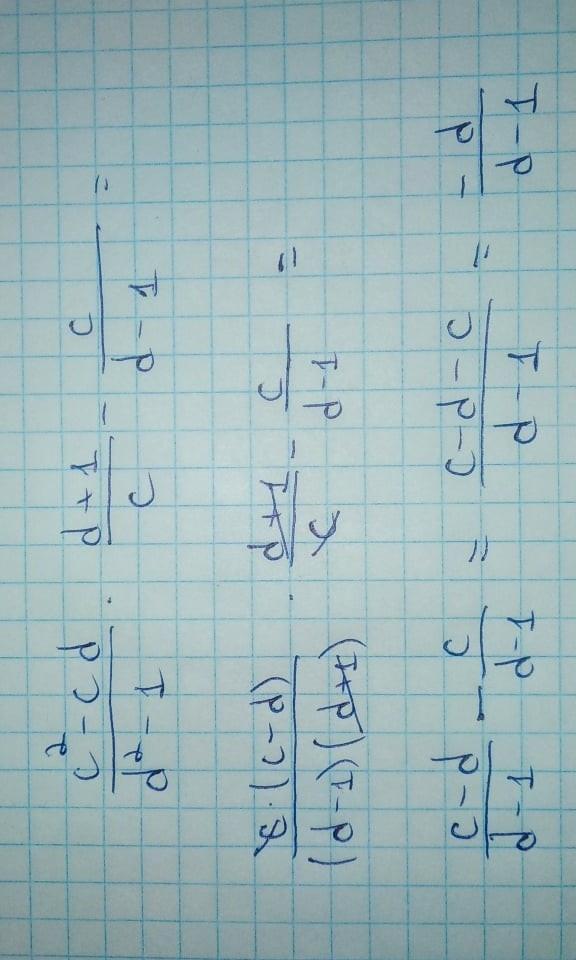 (c² - cd)/(d² - 1) · (d + 1)/c - c/(d - 1) =
(c · (c - d))/((d - 1)(d + 1)) · (d + 1)/c - c/(d - 1) =
(c - d)/(d - 1) - c/(d - 1) = (c - d - c)/(d - 1) = - d/(d - 1)